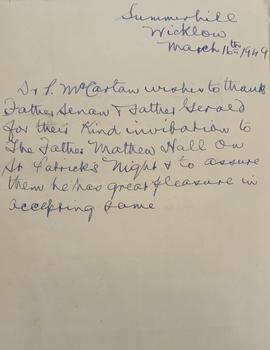 Summerhill
Wicklow
March 16th 1949
Dr P. McCartan wishes to thank
Father Senan & Father Gerald
for their kind invitation to
The Father Mathew Hall on
St Patrick's Night & to assure
them he has great pleasure in
accepting same